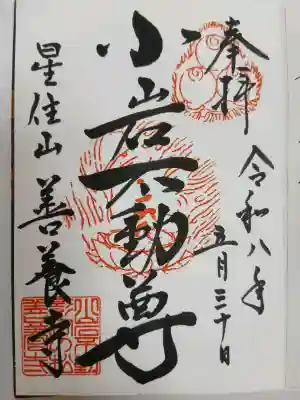 奉拝
令和八年
五月三十日
小岩不動尊
星住山 善養寺